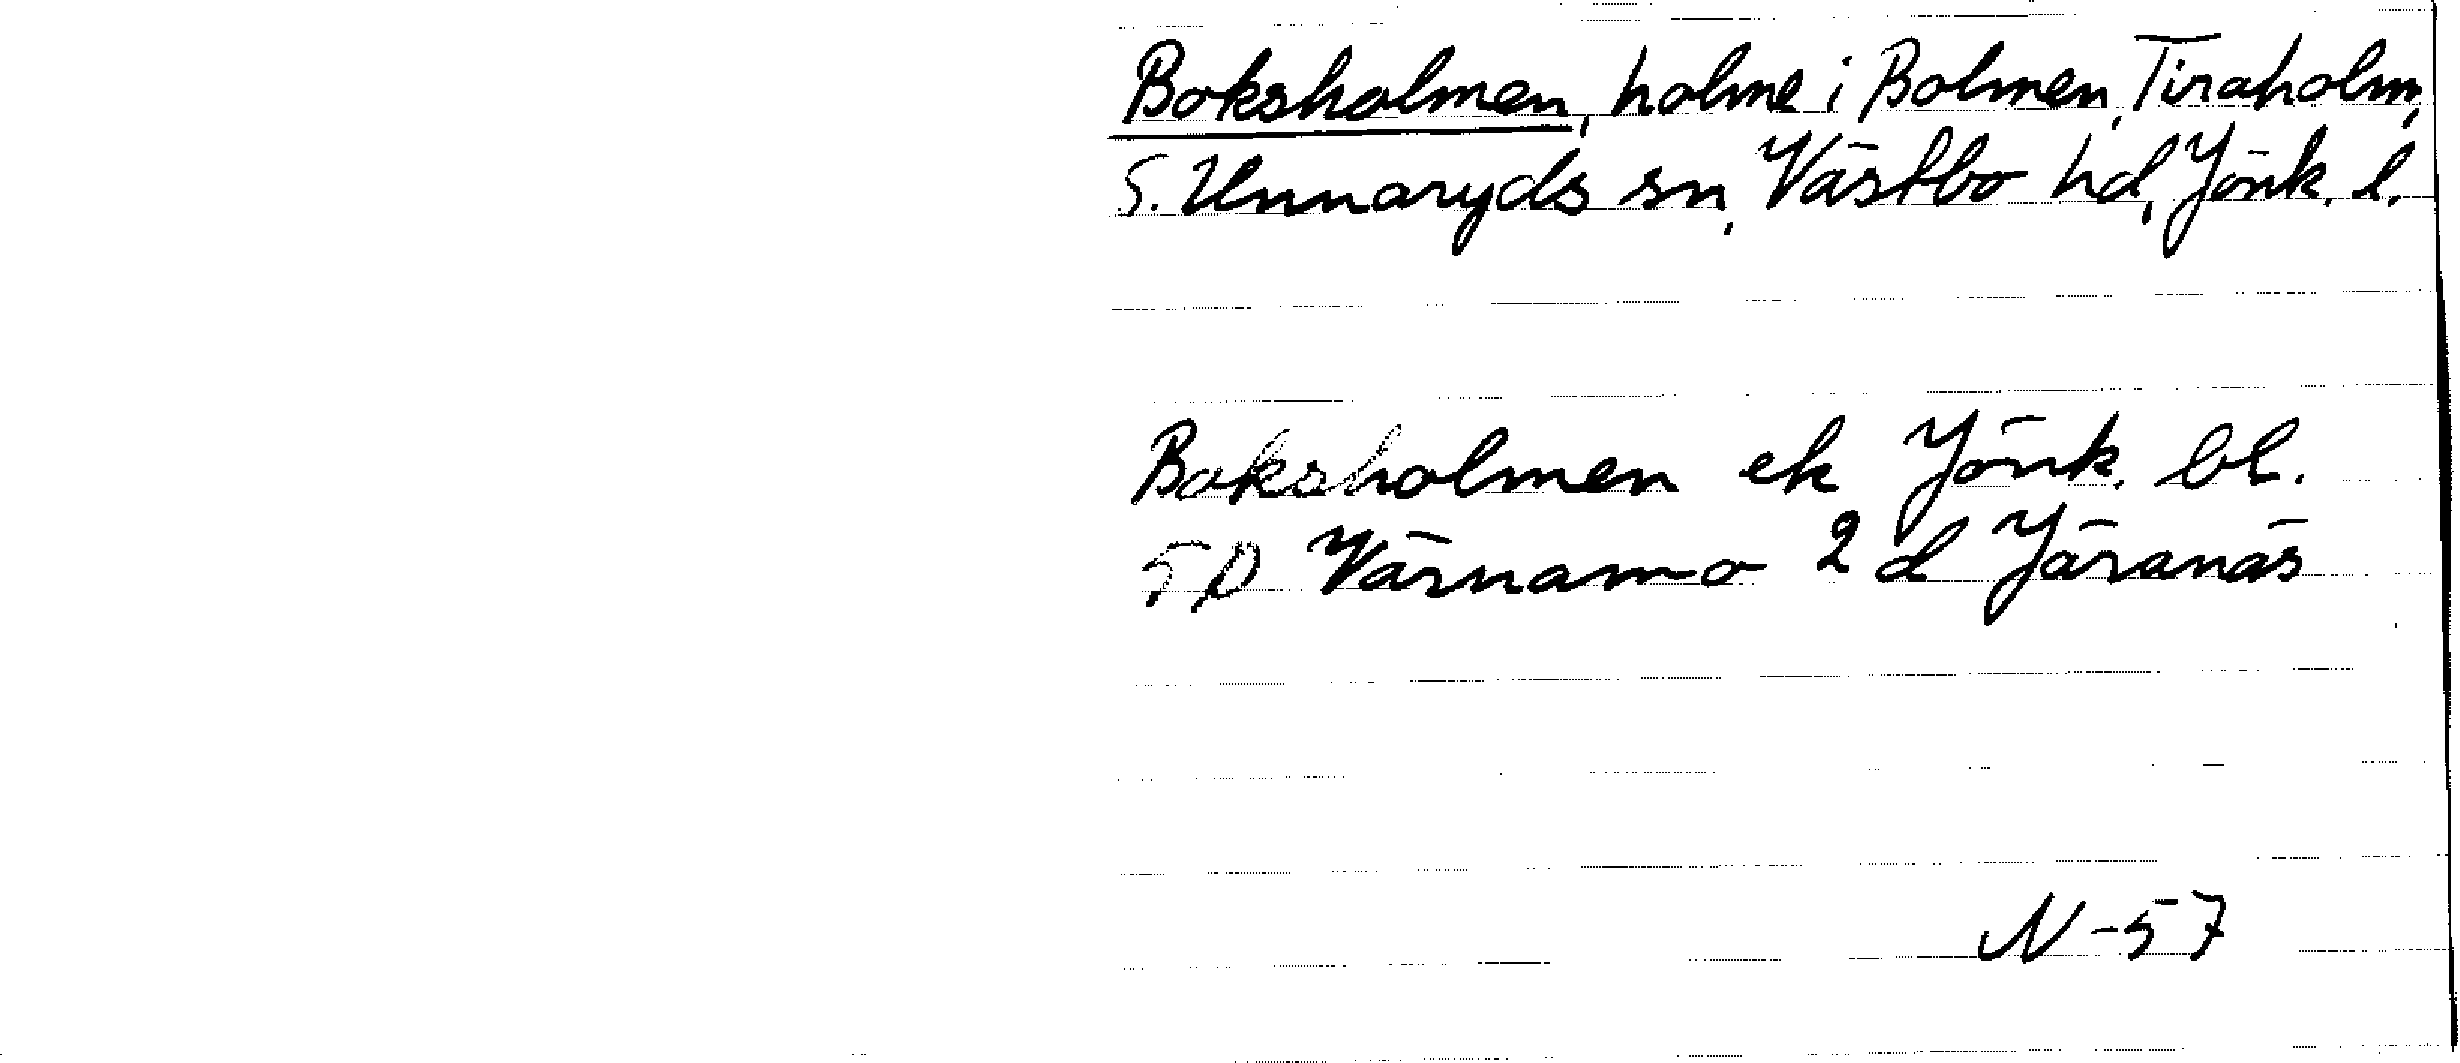 Boksholmen, holme i Bolmen, Tiraholm,
S. Unnaryds sn, Västbo hd, Jönk. l.
Boksholmen ek Jönk. bl.
5D Värnamo 2 d Järanäs
N-57